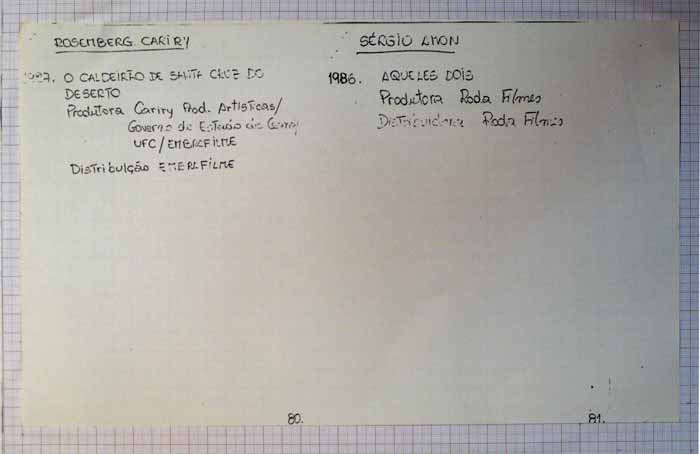 ROSEMBERG CARIRY
1987. O CALDEIRÃO DE SANTA CRUZ DO
DESERTO
Produtora Cariry Prod. Artisticas/
Governo do Estado do Ceará
UFC/EMBRAFILME
Distribuição EMBRAFILME
80.
SÉRGIO AMON
1986. AQUELES DOIS
Produtora Roda Filmes
Distribuidora Roda Filmes
81.